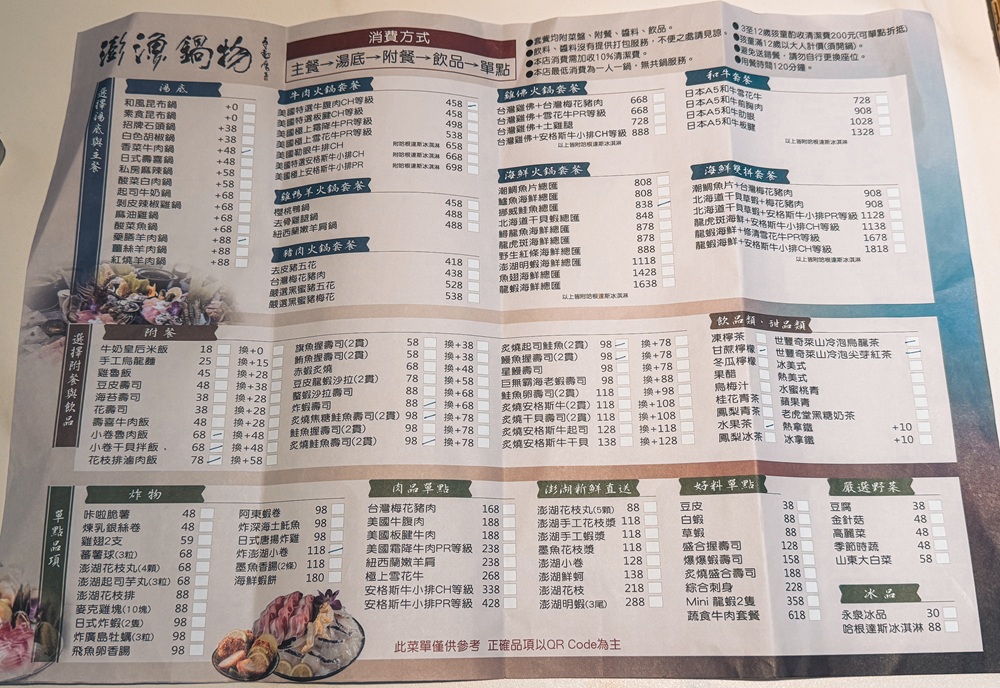 澎漁鍋物
消費方式
主餐→湯底→附餐→飲品→單點
●套餐均附菜盤、附餐、醬料、飲品。
●飲料、醬料沒有提供打包服務，不便之處請見諒。
●本店消費需加收10%清潔費。
●本店最低消費為一人一鍋，無共鍋服務。
●3至12歲孩童酌收清潔費200元(可單點折抵)
●孩童滿12歲以大人計價(須開鍋)。
●避免送錯餐，請勿自行更換座位。
●用餐時間120分鐘。
選擇湯底與主餐
湯底
和風昆布鍋 +0
素食昆布鍋 +0
招牌石頭鍋 +38
白色胡椒鍋 +38
香菜牛肉鍋 +48
日式壽喜鍋 +48
私房麻辣鍋 +58
酸菜白肉鍋 +58
起司牛奶鍋 +68
剝皮辣椒雞鍋 +68
麻油雞鍋 +68
酸菜魚鍋 +68
藥膳羊肉鍋 +88
薑絲羊肉鍋 +88
紅燒羊肉鍋 +88
牛肉火鍋套餐
美國特選牛腹肉CH等級 458
美國特選板腱CH等級 458
美國極上霜降牛PR等級 498
美國極上雪花牛PR等級 538
美國勒眼牛排CH 附哈根達斯冰淇淋 658
美國特選安格斯牛小排CH 附哈根達斯冰淇淋 668
美國極上安格斯牛小排PR 附哈根達斯冰淇淋 698
雞鴨羊火鍋套餐
櫻桃鴨鍋 458
去骨雞腿鍋 488
紐西蘭嫩羊肩鍋 488
豬肉火鍋套餐
去皮豬五花 418
台灣梅花豬肉 438
嚴選黑蜜豬五花 528
嚴選黑蜜豬梅花 538
雞佛火鍋套餐
台灣雞佛+台灣梅花豬肉 668
台灣雞佛+雪花牛PR等級 668
台灣雞佛+土雞腿 728
台灣雞佛+安格斯牛小排CH等級 888
以上皆附哈根達斯冰淇淋
海鮮火鍋套餐
潮鯛魚片總匯 808
鱸魚海鮮總匯 808
挪威鮭魚總匯 838
北海道干貝蝦總匯 848
鱘龍魚海鮮總匯 878
龍虎斑海鮮總匯 878
野生紅條海鮮總匯 888
澎湖明蝦海鮮總匯 1118
魚翅海鮮總匯 1428
龍蝦海鮮總匯 1638
以上皆附哈根達斯冰淇淋
和牛套餐
日本A5和牛雪花牛 728
日本A5和牛前胸肉 908
日本A5和牛肋眼 1028
日本A5和牛板腱 1328
以上皆附哈根達斯冰淇淋
海鮮雙拼套餐
潮鯛魚片+台灣梅花豬肉 908
北海道干貝草蝦+梅花豬肉 908
北海道干貝草蝦+安格斯牛小排PR等級 1128
龍虎斑海鮮+安格斯牛小排CH等級 1138
龍蝦海鮮+修清雪花牛PR等級 1678
龍蝦海鮮+安格斯牛小排CH等級 1818
以上皆附哈根達斯冰淇淋
選擇附餐與飲品
附餐
牛奶皇后米飯 18 換+0
手工烏龍麵 25 換+15
雞魯飯 45 換+28
豆皮壽司 48 換+38
海苔壽司 38 換+28
花壽司 38 換+28
壽喜牛肉飯 48 換+28
小卷魯肉飯 68 換+48
小卷干貝拌飯 68 換+48
花枝排滷肉飯 78 換+58
旗魚握壽司(2貫) 58 換+38
鮪魚握壽司(2貫) 58 換+38
赤蝦炙燒 68 換+48
豆皮龍蝦沙拉(2貫) 78 換+58
螯蝦壽司 88 換+68
炸蝦壽司 88 換+68
炙燒焦糖鮭魚壽司(2貫) 98 換+78
鮭魚握壽司(2貫) 98 換+78
炙燒鮭魚壽司(2貫) 98 換+78
炙燒起司鮭魚(2貫) 98 換+78
鰻魚握壽司(2貫) 98 換+78
星鰻壽司 98 換+78
巨無霸海老蝦壽司 98 換+88
鮭魚卵壽司(2貫) 118 換+98
炙燒安格斯牛(2貫) 118 換+108
炙燒干貝壽司(2貫) 118 換+108
炙燒安格斯牛起司 128 換+118
炙燒安格斯牛干貝 138 換+128
飲品類、甜品類
凍檸茶
甘蔗檸檬
冬瓜檸檬
果醋
烏梅汁
桂花青茶
鳳梨青茶
水果茶
鳳梨冰茶
世豐奇萊山冷泡烏龍茶
世豐奇萊山冷泡尖芽紅茶
冰美式
熱美式
水蜜桃青
蘋果青
老虎堂黑糖奶茶
熱拿鐵 +10
冰拿鐵 +10
單點品項
炸物
咔啦脆薯 48
煉乳銀絲卷 48
雞翅2支 59
蕃薯球(3粒) 68
澎湖花枝丸(4顆) 68
澎湖起司芋丸(3粒) 68
澎湖花枝排 88
麥克雞塊(10塊) 88
日式炸蝦(2隻) 98
炸廣島牡蠣(3粒) 98
飛魚卵香腸 98
阿東蝦卷 98
炸深海土魠魚 98
日式唐揚炸雞 98
炸澎湖小卷 118
墨魚香腸(2條) 118
海鮮蝦餅 180
肉品單點
台灣梅花豬肉 168
美國牛腹肉 188
美國板腱牛肉 188
美國霜降牛肉PR等級 238
紐西蘭嫩羊肩 238
極上雪花牛 268
安格斯牛小排CH等級 338
安格斯牛小排PR等級 428
澎湖新鮮直送
澎湖花枝丸(5顆) 88
澎湖手工花枝漿 118
澎湖手工蝦漿 118
墨魚花枝漿 118
澎湖小卷 128
澎湖鮮蚵 138
澎湖花枝 218
澎湖明蝦(3尾) 288
好料單點
豆皮 38
白蝦 88
草蝦 88
盛合握壽司 128
爆爆蝦壽司 158
炙燒盛合壽司 188
綜合刺身 228
Mini 龍蝦2隻 358
蔬食牛肉套餐 618
嚴選野菜
豆腐 38
金針菇 48
高麗菜 48
季節時蔬 48
山東大白菜 58
冰品
永泉冰品 30
哈根達斯冰淇淋 88
此菜單僅供參考 正確品項以QR Code為主